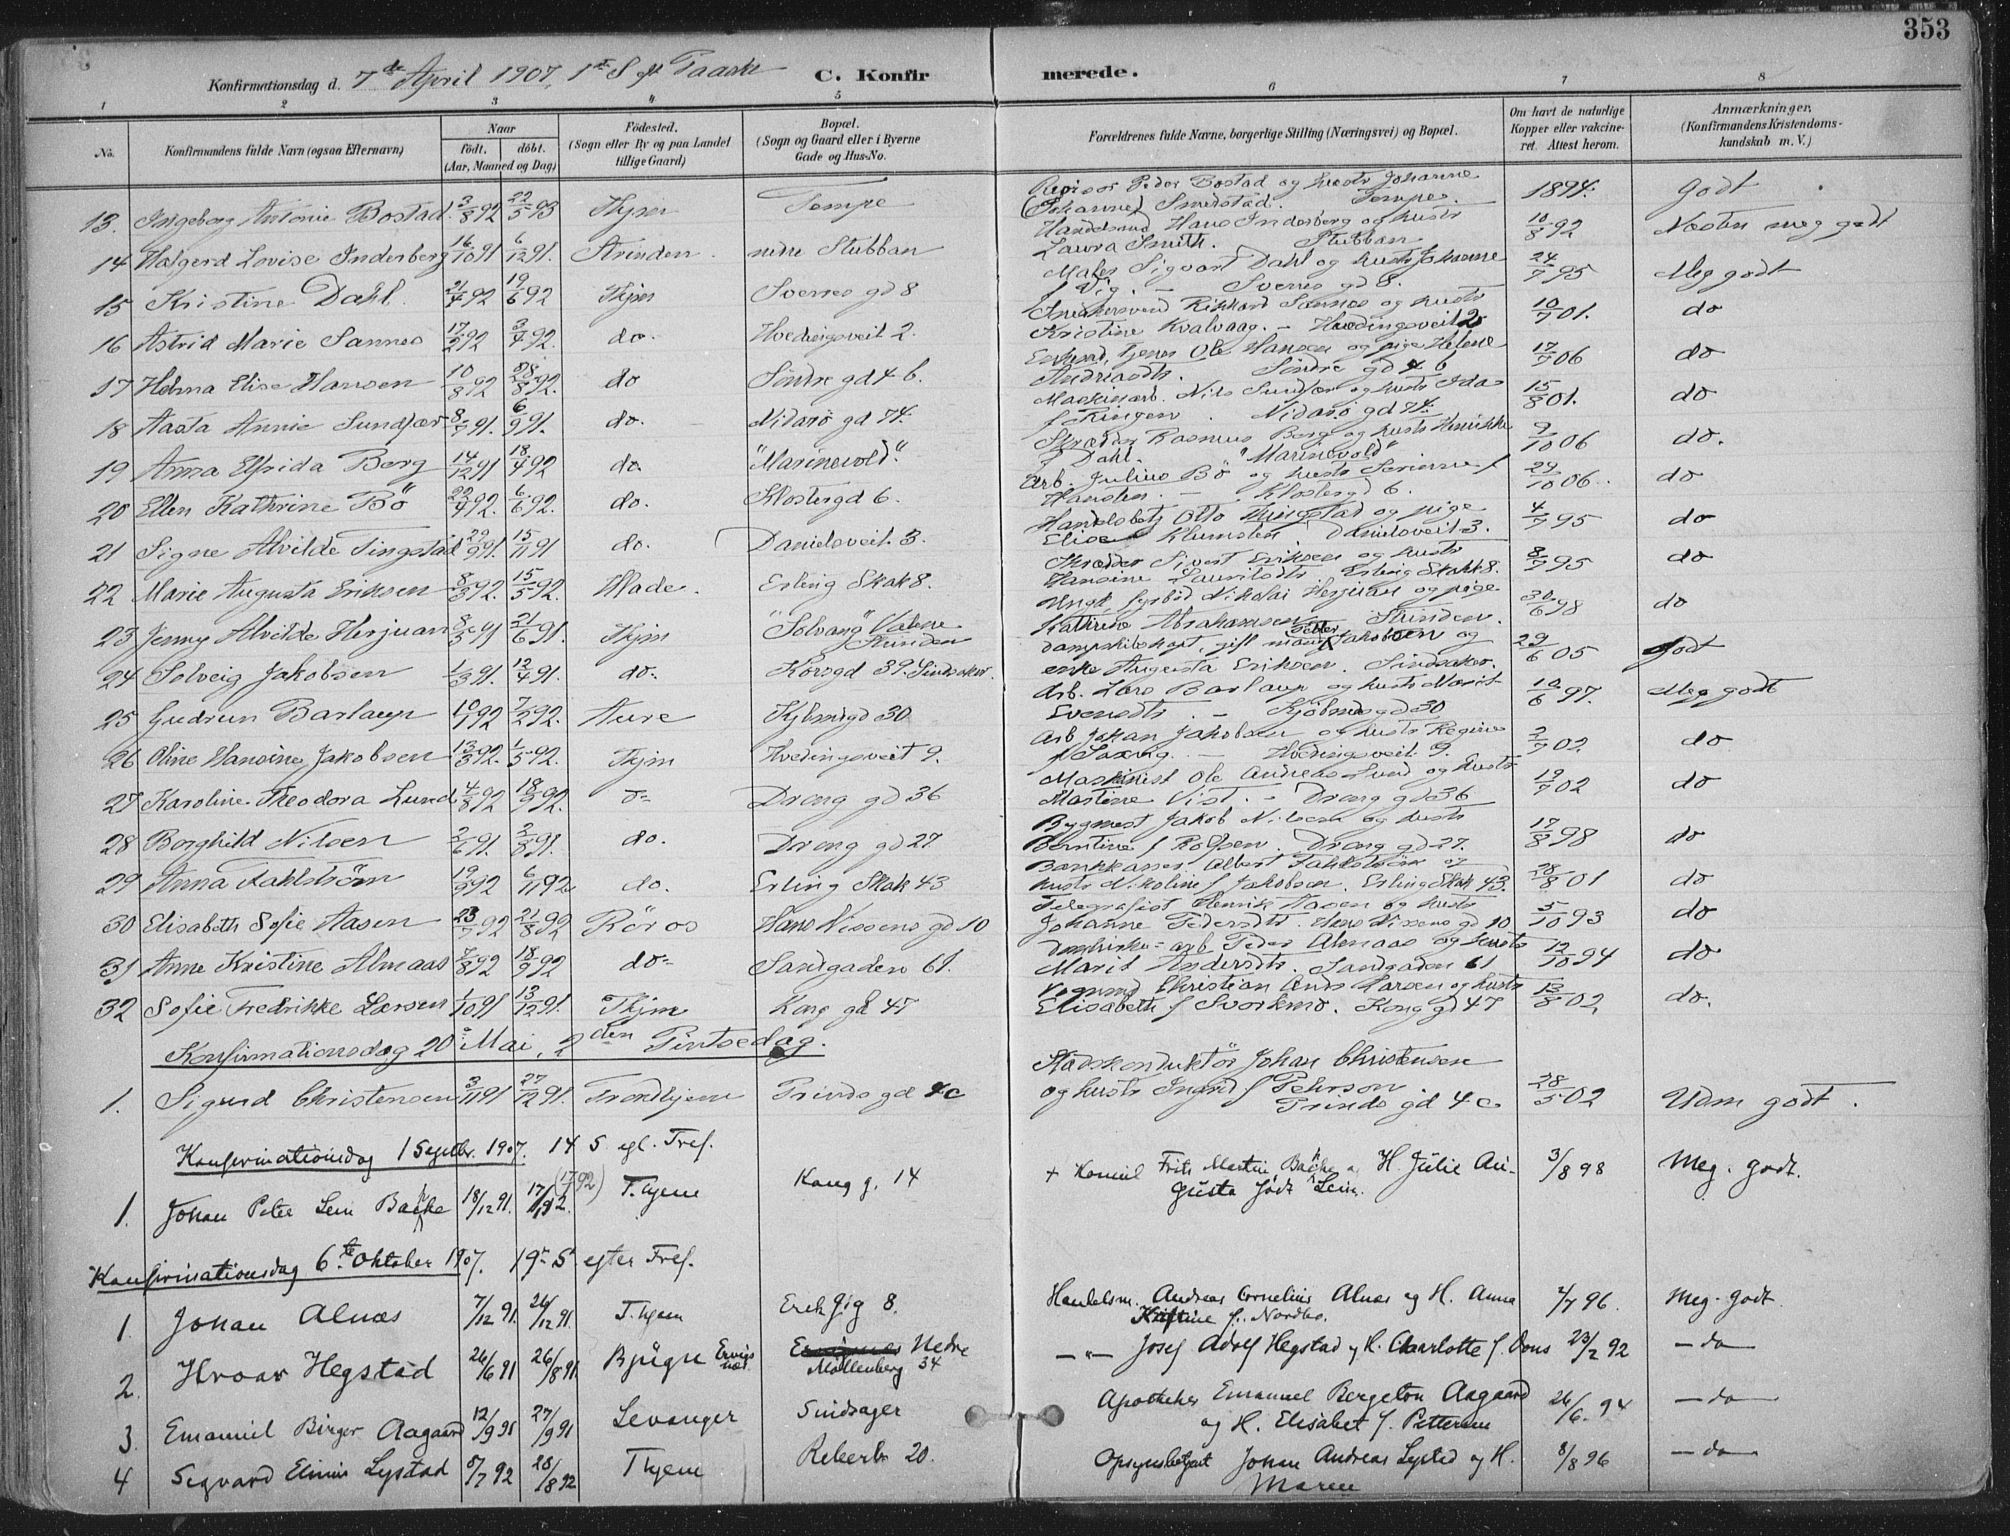 353
Konfirmationsdag d. 7de April 1907, 1ste S. eft. Paaske C. Konfirmerede.
1 2 3 4 5 6 7 8
No. Konfirmandens fulde Navn (ogsaa Efternavn) Naar födt. döbt. (Aar, Maaned og Dag) Födested. (Sogn eller By og paa Landet tillige Gaard) Bopæl. (Sogn og Gaard eller i Byerne Gade og Hus-No. Forældrenes fulde Navne, borgerlige Stilling (Næringsvei) og Bopæl. Om havt de naturlige Kopper eller vakcineret. Attest herom. Anmærkninger. (Konfirmandens Kristendomskundskab m. V.)
13. Ingeborg Antonie Bostad 3/8 92 22/5 93 Thjm Tempe Peder Bostad og hustr Johanne (Johanne) Smedstad. Tempe. 1894. Godt
14 Valgerd Lovise Inderberg 16/10 91 6/12 91. Strinden. nedre Stubban Handelsmd Hans Inderberg og hustr Laura Smith. Stubban 10/8 92 Næsten meg godt
15 Kristine Dahl. 21/4 92 19/6 92 Thjm Sverres gd 8 Maler Sigvart Dahl og hustr Johanne f Vig. – Sverres gd 8. 24/7 95 Meg godt
16 Astrid Marie Sannes 17/2 92 3/4 92. do. Hvedingsveit 2. Snedkersvend Rikhard Sannes og hustr Kristine Kvalvaag. – Hvedingsveit 2 10/7 01. do
17 Helma Elise Hansen 10/8 92 28/8 92. do Söndre gd 4 b. Enkemd, Tjener Ole Hansen og pige Helene Andriasdtr. Söndre gd 4 b 17/7 06 do
18 Aasta Annie Sundfær 8/7 91. 6/9 91. do. Nidarö gd 74. Maskinarb. Nils Sundfær og hustr Ida f Ringen. Nidarö gd 74. 15/8 01. do
19 Anna Elfrida Berg 14/12 91 18/4 92 do. "Marinevold". Skrædder Rasmus Berg og hustr Henrikke f Dahl. "Marinevold" 9/10 06 do.
20 Ellen Kathrine Bö 22/4 92. 6/6 92. do. Klostergd 6. Arb. Julius Bö og hustr Serianna f Hansen. – Klostergd 6. 24/10 06. do
21 Signe Alvilde Tingstad 29/9 91. 15/11 91 do. Danielsveit 3. Handelsbetj Otto Tingstad og pige Elise Klumsten. Danielsveit 3. 4/7 95 do
22 Marie Augusta Eriksen 8/3 92. 15/5 92. Hlade. Erling Skak 8. Skrædder Sivert Eriksen og hustr Hansine Lauritsdtr. Erling Skakk 8. 8/7 95 do
23 Jenny Alvilde Herjuan 8/5 91 21/6 91. Thjm "Solvang" Valene Strinden Ungk. fyrböd Nikolai Herjuan og pige Kathrine Abrahamsen. Strinden. 30/6 98 do
24 Solveig Jakobsen 1/3 91. 12/4 91. do. Korsgd 39. Sindsaker. Dampskibskapt, gift mand Peder Jakobsen og enke Augusta Eriksen. Sindsaker. 29/6 05 Godt
25 Gudrun Barlaup 10/1 92 7/2 92. Aure Kjbmdgd 30 Arb. Lars Barlaup og hustr Marit Evensdtr. – Kjöbmdsgd 30 10/6 97. Meg godt
26 Oline Hansine Jakobsen 13/3 92. 1/5 92. Thjm Hvedingsveit 9. Arb Johan Jakobsen og hustr Regine f Saxvig. – Hvedingsveit. 9. 2/7 02 do
27 Karoline Theodora Lund 4/8 92 18/9 92. do Drong gd 36 Maskinist Ole Andreas Lund og hustr Martine Vist. – Drong gd 36 19/7 02 do
28 Borghild Nilsen 2/6 91. 2/8 91. do. Drong gd 27 Bygmest Jakob Nilsen og hustr Berntine f Rolfsen. Drong gd 27. 17/8 98 do
29 Anna Fahlström 19/9 92 6/11 92 do. Erling Skak 43 Bankkasser Albert Fahlström og hustr Nikoline f Jakobsen. Erling Skak 43. 28/8 01 do
30 Elisabeth Sofie Aasen 23/7 92 21/8 92 Röros Hans Nissens gd 10 Telegrafist Henrik Aasen og hustr Johanne Pedersdtr. Hans Nissens gd 10 5/10 93 do
31 Anne Kristine Almaas 7/8 92 18/9 92 do Sandgaden 61. arb Peder Almaas og hustr Marit Andersdtr. Sandgaden 61 12/10 94 do
32 Sofie Fredrikke Larsen 1/10 91 13/12 91. Thjm Kong gd 47 Vognmd Christian Ands Larsen og hustr Elisabeth f Svorkmo. Kong gd 47 13/8 02 do.
Konfirmationsdag 20 Mai, 2den Pintsedag.
1. Sigurd Christensen 3/11 91 27/12 91. Trondhjem Prinds gd 4c Stadskonduktör Johan Christensen og hustr Ingrid f Pehrson Prinds gd 4c 28/5 02 Udm godt.
Konfirmationsdag 1 Septbr. 1907. 14 S. eft. Tref.
1. Johan Peter Lein Bache 18/12 91. 17/1 92. (17/1 92) T.hjem Kong g. 14 + Frits Martin Bache o. H. Julie Augusta födt Lein. 3/8 98 Meg. godt.
Konfirmationsdag 6te Oktober 1907. 19de S. efter Tref.
1. Johan Alnæs 7/12 91. 26/12 91. T.hjem Erik Jig 8. Handelsm. Andreas Cornelius Alnæs og H. Anna Kristine f. Nordbo. 4/7 96. Meg. godt.
2. Hroar Hegstad 26/6 91 26/8 91. Bjugn Nedre Möllenberg 34 –"– Josef Adolf Hegstad og H. Charlotte f. Dons 23/2 92 – do
3. Emanuel Birger Aagaard 12/9 91 27/9 91 Levanger Sindsager Apotheker Emanuel Bergeton Aagaard og H. Elisabet f. Pettersen 26/6. 94 – do –
4 Segvard Elinius Lystad 5/7 92 28/8 92 T.hjem Reberb 20. Opsynsbetjent Johan Andreas Lystad og H. Maren 8/8 96 – do –